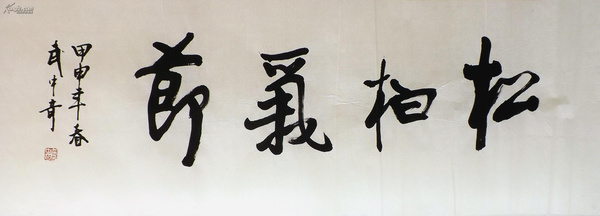 松柏氣節
甲申年春
武中奇